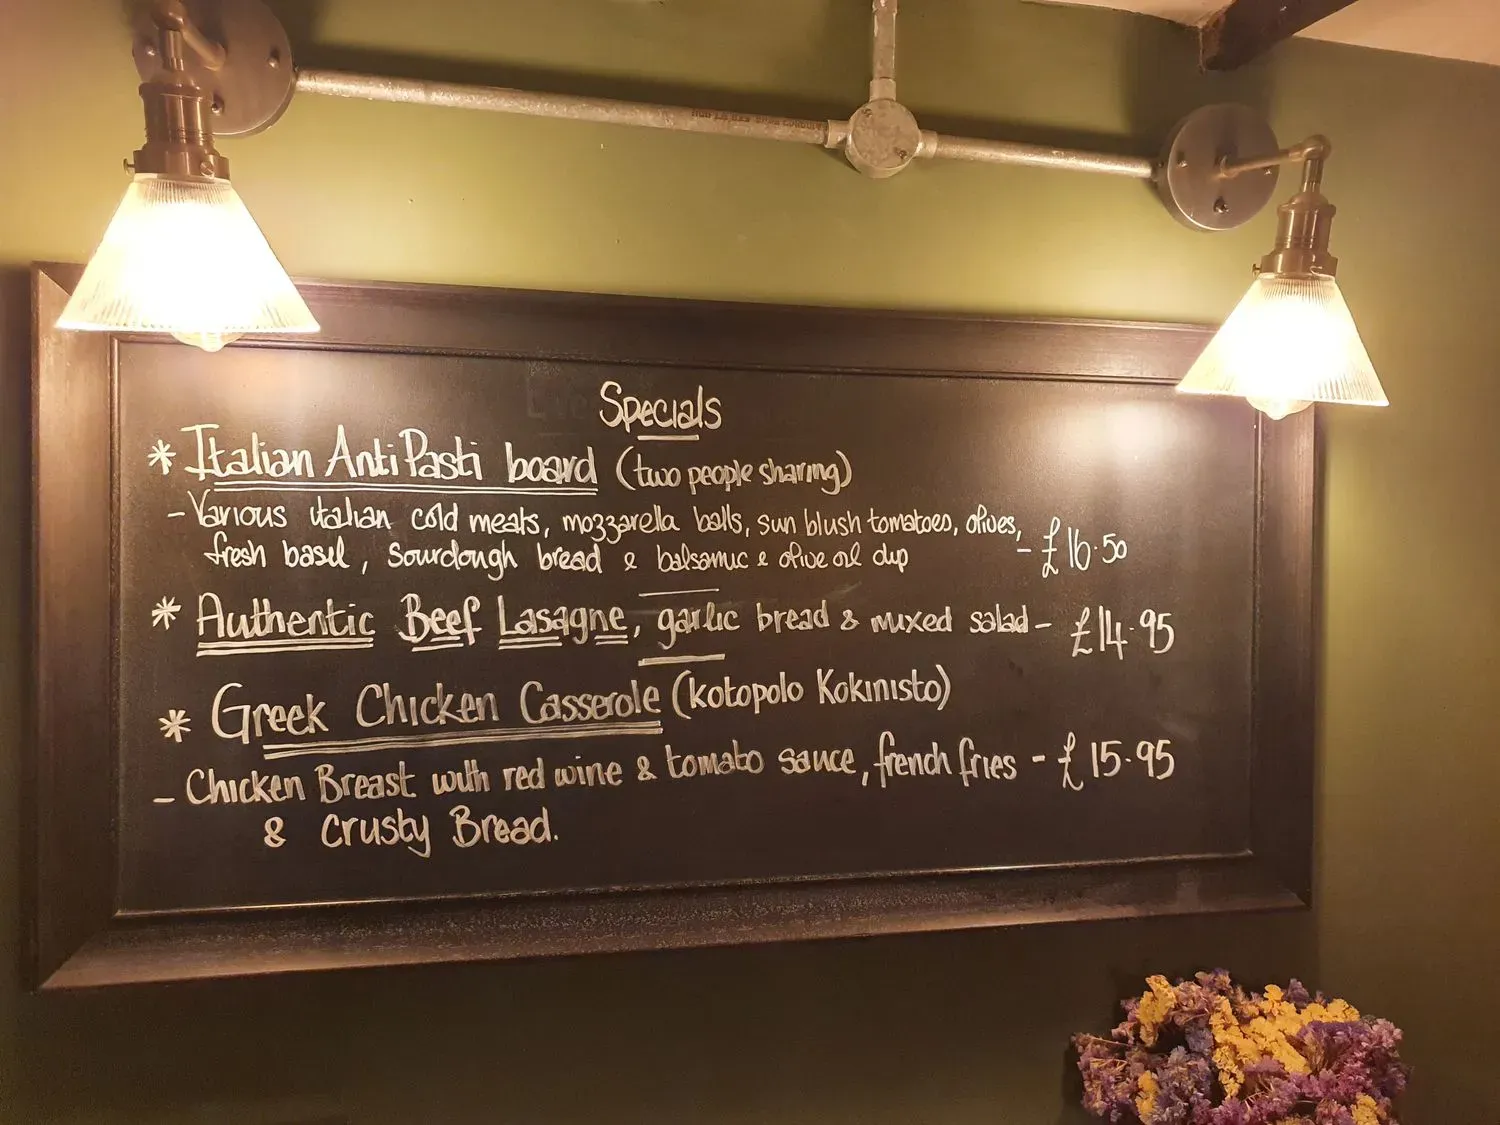 Specials
* Italian AntiPasti board (two people sharing)
- Various italian cold meats, mozzarella balls, sun blush tomatoes, olives,
fresh basil, sourdough bread & balsamic & olive oil dip - £16.50
* Authentic Beef Lasagne, garlic bread & mixed salad - £14.95
* Greek Chicken Casserole (kotopolo Kokinisto)
- Chicken Breast with red wine & tomato sauce, french fries - £15.95
& Crusty Bread.